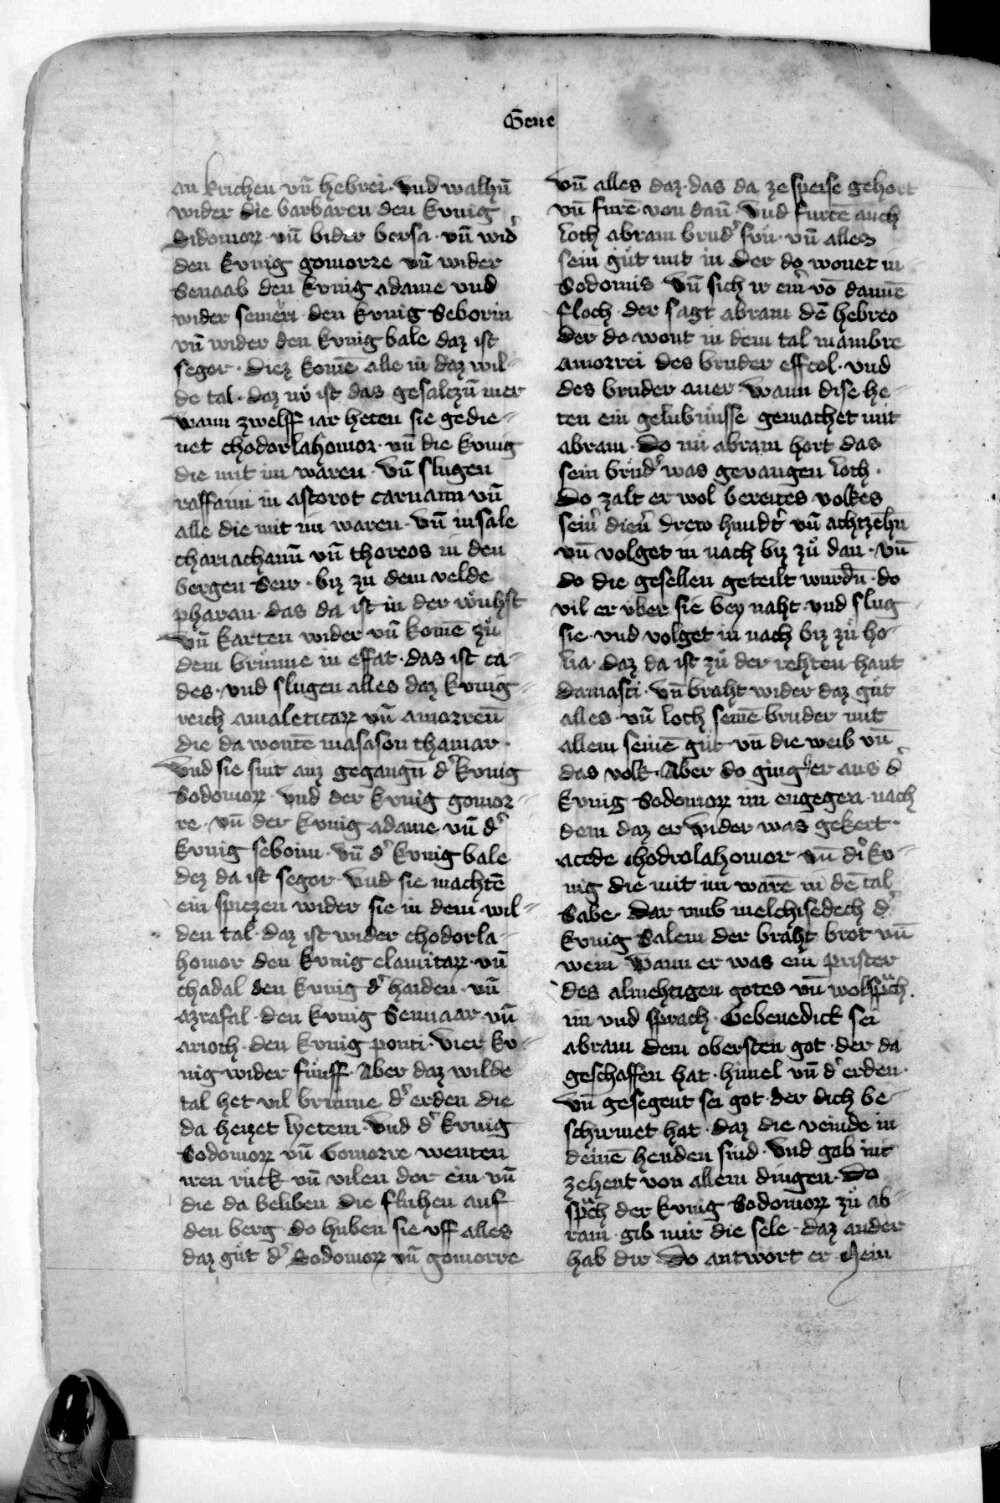 Gene
an krichen vn̄ hebrei · vnd walhn̄
wider die barbaren den kvnig
Sidomorꝝ · vn̄ bider bersa · vn̄ wid᾽
den kvnig gomorre vn̄ wider
Senaab den kvnig adame vnd
wider semeri · den kvnig Seborin
vn̄ wider den kvnig bale daz ist
segor · diez komē alle in daz wil-
de tal · daz nv̊ ist das gesalczn̄ mer
wann zwelff iar heten sie gedie-
net chodorlahomor · vn̄ die kvnig
die mit im waren · vn̄ slugen
raffaim in astorot carnaim vn̄
alle die mit im waren · vn̄ in sale
chariachanū vn̄ thoreos in den
bergen Seir · biz zu dem velde
pharan · das da ist in der wuͤhst
vn̄ karten wider vn̄ komē zuͦ
dem brunne in effat · das ist ca-
des · vnd slugen alles daz kvnig-
reich amaleticarꝝ vn̄ amorreū
die da wontē in asason thamar ·
vnd sie sint auz gegangn̄ d᾽ kvnig
Sodomorꝝ · vnd der kvnig gomor-
re · vn̄ der kvnig adame vn̄ d᾽
kvnig seboim · vn̄ d᾽ kvnig bale
dez da ist segor · vnd sie machtē
ein spiczen wider sie in dem wil-
den tal · daz ist wider chodorla-
homor den kvnig elamitarꝝ · vn̄
chadal den kvnig d᾽ haiden · vn̄
azrafal · den kvnig Sennaar vn̄
arioch · den kvnig ponti · vier kv-
nig wider fuͤnff · Aber daz wilde
tal het vil brunne d᾽ erden die
da heizet lyetem · vnd d᾽ kvnig
Sodomorꝝ vn̄ Gomorre wenten
iren ruͤck vn̄ vilen dor ein · vn̄
die da beliben die fluhen auf
den berg · do huben sie vff alles
daz guͦt d᾽ Sodomorꝝ vn̄ gomorre
vn̄ alles daz · das da ze speise gehort
vn̄ furē von dan̄ · vnd furtē auch
Loth abram brud᾽ sun · vn̄ alles
sein guͦt mit in der do wonet in
Sodomis vn̄ sich ir ein᾽ vō dannē
floch · der sagt abram dē hebreo
der do wont in dem tal mambre
amorrei des bruder effcol · vnd
des bruder aner wann dise he-
ten ein gelubnuͤsse gemachet mit
abram · do nu abram hort das
sein brud᾽ was gevangen loth ·
do zalt er wol bereites volkes
sein᾽ dien᾽ drew hundt᾽ vn̄ achtzehn̄
vn̄ volget in nach biz zuͦ dan · vn̄
do die gesellen geteilt wurdn̄ · do
vil er vber sie bey naht · vnd slug
sie · vnd volget in nach biz zuͦ ho-
ba · daz da ist zuͦ der rehten hant
damasci · vn̄ braht wider daz guͦt
alles · vn̄ loth seinē bruder mit
allem seinē guͦt vn̄ die weib vn̄
das volk · Aber do ging er aus d᾽
kvnig Sodomorꝝ im engegen nach
dem daz er wider was gekert ·
acede chodrolahomor vn̄ di kv-
nig die mit im warē in dē tal
Sabe · Dar vmb melchisedech d᾽
kvnig Salem der braht brot vn̄
wein wann er was ein prister
des almehtigen gotes vn̄
im vnd sprach · Gebenedict sei
abram dem obersten got · der da
geschaffen hat · himel vn̄ d᾽ erden ·
vn̄ gesegent sei got · der dich be-
schirmet hat · daz die veinde in
deinē henden sind · vnd gab im
zehent von allem dingen · do
sprach der kvnig Sodomorꝝ zuͦ ab-
ram · gib mir die sele · daz ander
hab dir do antwort er · Nein